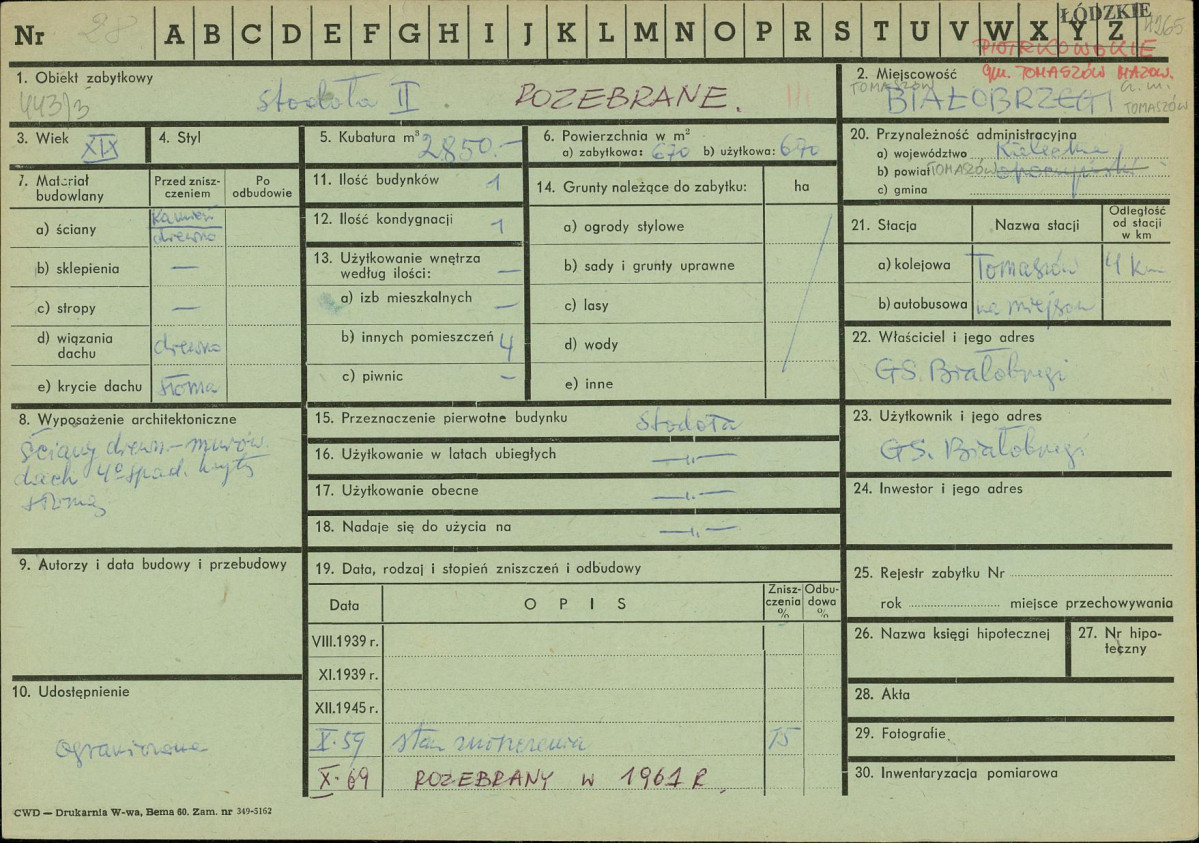 Nr 28 A B C D E F G H I J K L M N O P R S T U V W X Y Z
ŁÓDZKIE 4265
PIOTRKOWSKIE
gm. TOMASZÓW MAZOW.
1. Obiekt zabytkowy
443/3 Stodoła II ROZEBRANE. III
2. Miejscowość
TOMASZÓW
BIAŁOBRZEGI
TOMASZÓW
3. Wiek XIX
4. Styl
5. Kubatura m³ 2850.-
6. Powierzchnia w m²
a) zabytkowa: 670 b) użytkowa: 670
20. Przynależność administracyjna
a) województwo Kieleckie
b) powiat TOMASZÓW opoczyński
c) gmina
7. Materiał budowlany
Przed zniszczeniem
Po odbudowie
a) ściany kamień drewno
b) sklepienia —
c) stropy —
d) wiązania dachu drewno
e) krycie dachu słoma
11. Ilość budynków 1
12. Ilość kondygnacji 1
13. Użytkowanie wnętrza według ilości: —
a) izb mieszkalnych —
b) innych pomieszczeń 4
c) piwnic —
14. Grunty należące do zabytku: ha
a) ogrody stylowe
b) sady i grunty uprawne
c) lasy
d) wody
e) inne
21. Stacja
Nazwa stacji
Odległość od stacji w km
a) kolejowa Tomaszów 4 km
b) autobusowa na miejscu
22. Właściciel i jego adres
GS. Białobrzegi
8. Wyposażenie architektoniczne
Ściany drewn.-murow.
dach 4o spad. kryty
słomą
15. Przeznaczenie pierwotne budynku Stodoła
16. Użytkowanie w latach ubiegłych —„—
17. Użytkowanie obecne —„—
18. Nadaje się do użycia na —„—
23. Użytkownik i jego adres
GS. Białobrzegi
24. Inwestor i jego adres
9. Autorzy i data budowy i przebudowy
10. Udostępnienie
ograniczone
19. Data, rodzaj i stopień zniszczeń i odbudowy
Data
OPIS
Zniszczenia %
Odbudowa %
VIII.1939 r.
XI.1939 r.
XII.1945 r.
X.59 stan zniszczenia 75
X.69 ROZEBRANY w 1961 R.
25. Rejestr zabytku Nr
rok miejsce przechowywania
26. Nazwa księgi hipotecznej
27. Nr hipoteczny
28. Akta
29. Fotografie
30. Inwentaryzacja pomiarowa
CWD — Drukarnia W-wa, Bema 60. Zam. nr 349-5162